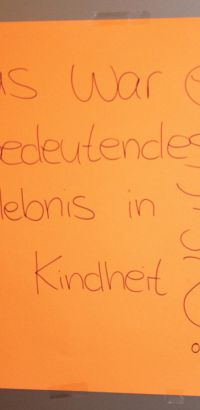 as war
bedeutendes
lebnis in
Kindheit